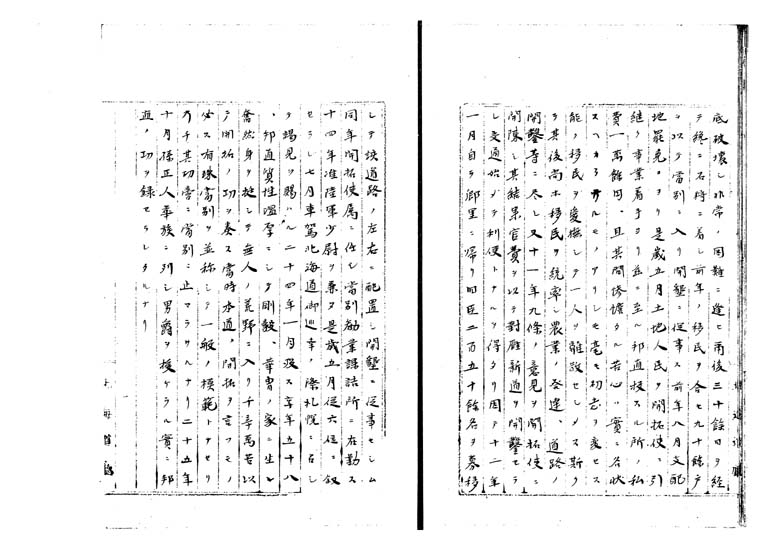 底破壊シ非常ノ困難ニ逢ヒ雨後三十餘日ヲ経
テ終ニ石狩ニ着シ前年ノ移民ヲ合セ九十餘戸
ヲ以テ當別ニ入リ開墾ニ従事ス前年八月支配
地罷免トナリ是歳五月土地人民ヲ開拓使ニ引
継ク事業着手ヨリ茲ニ至ル邦直投スル所ノ私
費一萬餘円且其間惨憺タル苦心ハ實ニ名状
スヘカラサルモノアリシモ毫モ初志ヲ変セス
能ク移民ヲ愛撫シテ一人ノ離散セシメス斯ク
テ其後尚ホ移民ヲ統率シ農業ノ発達、道路ノ
開鑿等ニ尽シ又十一年九條ノ意見ヲ開拓使ニ
開陳シ其結果官費ヲ以テ對雁新道ヲ開鑿セラ
レ交通始メテ利便トナルヲ得タリ同テ十二年
一月自ラ郷里ニ帰リ旧臣二百五十餘名ヲ募移
シテ該道路ノ左右ニ配置シ開墾ニ従事セシム
同年開拓使属ニ任シ當別勧業課詰所ニ在勤ス
十四年准陸軍少尉ヲ兼ヌ是歳五月従六位ニ叙
セラレ七月車駕北海道御巡幸ノ際札幌ニ召シ
テ謁見ヲ賜ハル二十四年一月歿ス享年五十八
、邦直質性温厚ニシテ剛毅、華冑ノ家ニ生レ
奮然身ヲ挺シテ無人ノ荒野ニ入リ千辛萬苦以
テ開拓ノ功ヲ奏ス當時本道ノ開拓ヲ言フモノ
必ス有珠當別ヲ並称シテ一般ノ模範トナセリ
乃チ其功啻ニ當別ニ止マラサルナリ二十五年
十月孫正人華族ニ列シ男爵ヲ授ケラル實ニ邦
直ノ功ヲ録セラレタルナリ
北海道廳